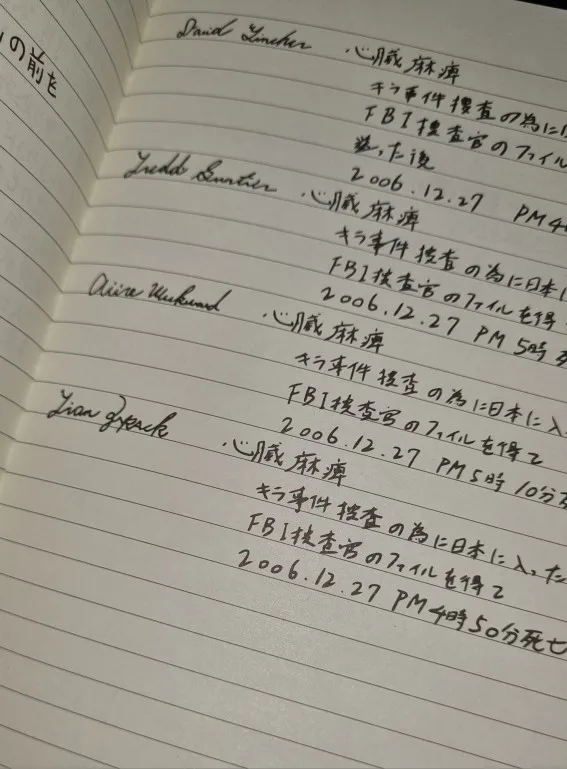 の前を
David
心臓麻痺
キラ事件捜査の為に
FBI捜査官のファイル
送った後
2006.12.27 PM 4
Fredd Guntier
心臓麻痺
キラ事件捜査の為に日本に
FBI捜査官のファイルを得
2006.12.27 PM 5時
心臓麻痺
キラ事件捜査の為に日本に入
FBI捜査官のファイルを得て
2006.12.27 PM 5時 10分死
Lian
心臓麻痺
キラ事件捜査の為に日本に入った
FBI捜査官のファイルを得て
2006.12.27 PM 4時 50分死亡